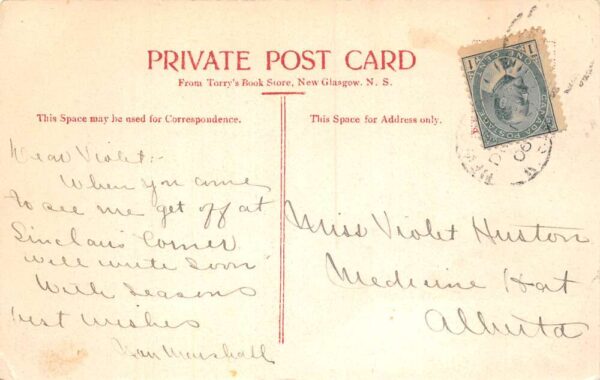 PRIVATE POST CARD
From Torry's Book Store, New Glasgow. N. S.
This Space may be used for Correspondence.
Dear Violet:-
When you come
to see me get off at
Sinclairs Corner
will write soon
With Seasons
best wishes
Marshall
This Space for Address only.
Miss Violet Huston
Medicine Hat
Alberta
1
1